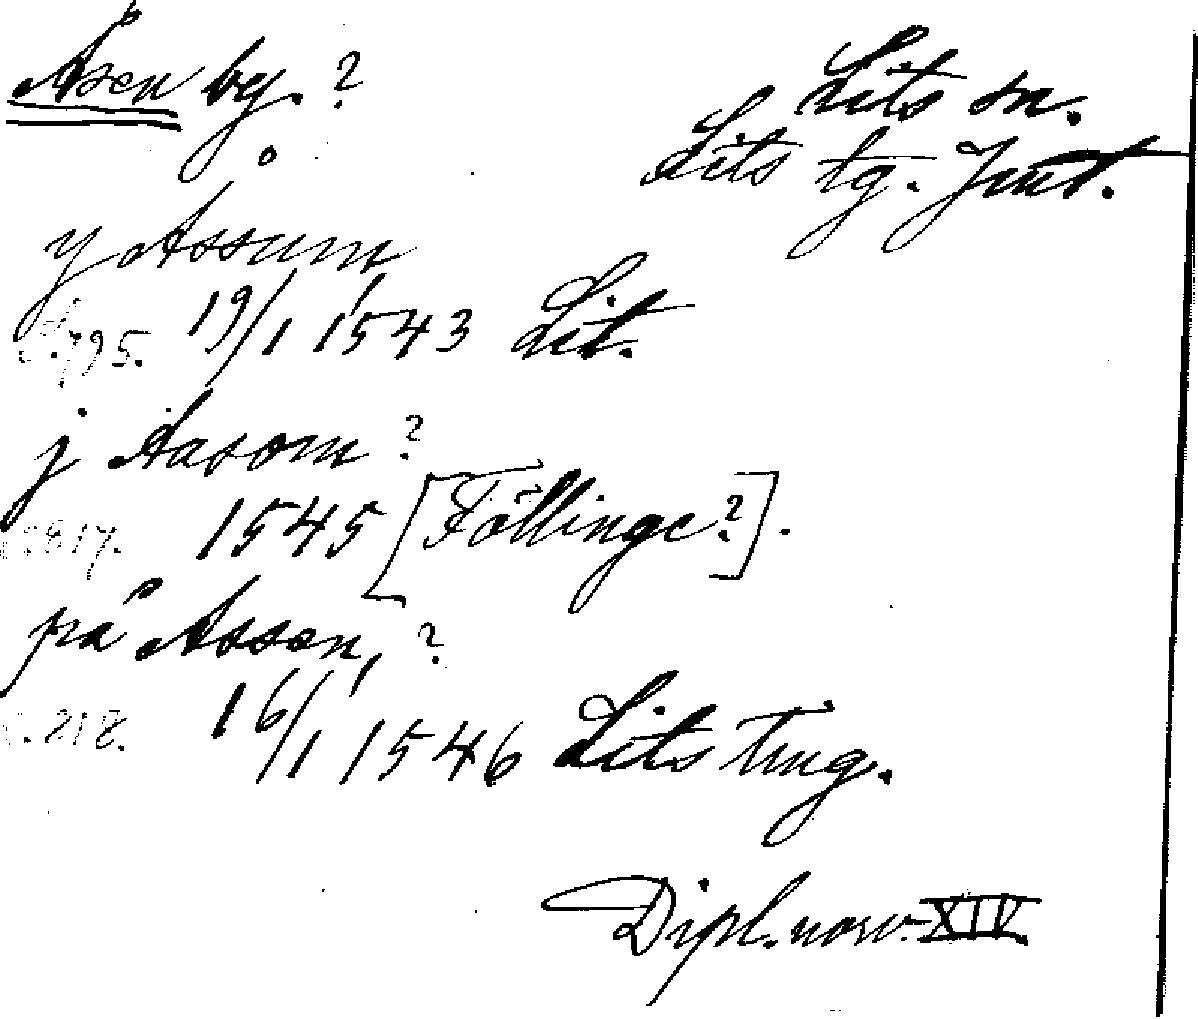 Åsen by. ?
Lits sn.
Lits tg. Jmt.
y Åssum
s. 795. 19/1 1543 Lit.
j Aasom ?
s. 817. 1545 [Föllinge?].
på Åssen, ?
s. 218. 16/1 1546 Lits ting.
Dipl. norv. XIV.